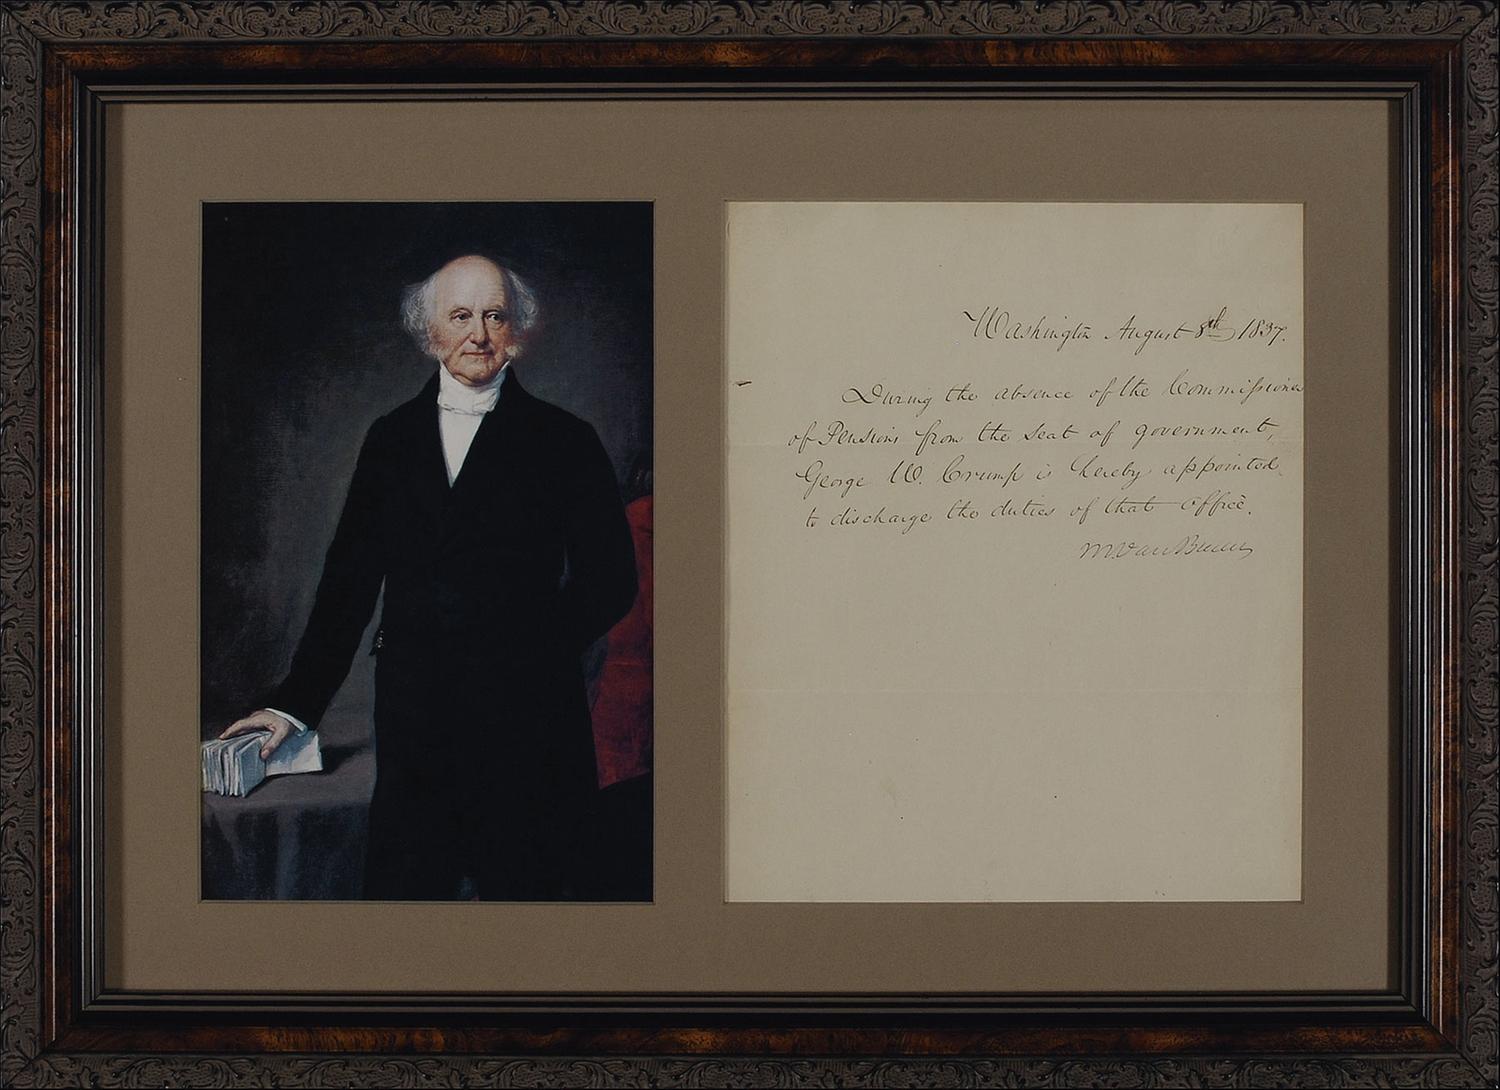 Washington August 8th 1837.
During the absence of the Commissioner
of Pensions from the seat of government,
George W. Crump is hereby appointed
to discharge the duties of that office.
M. Van Buren